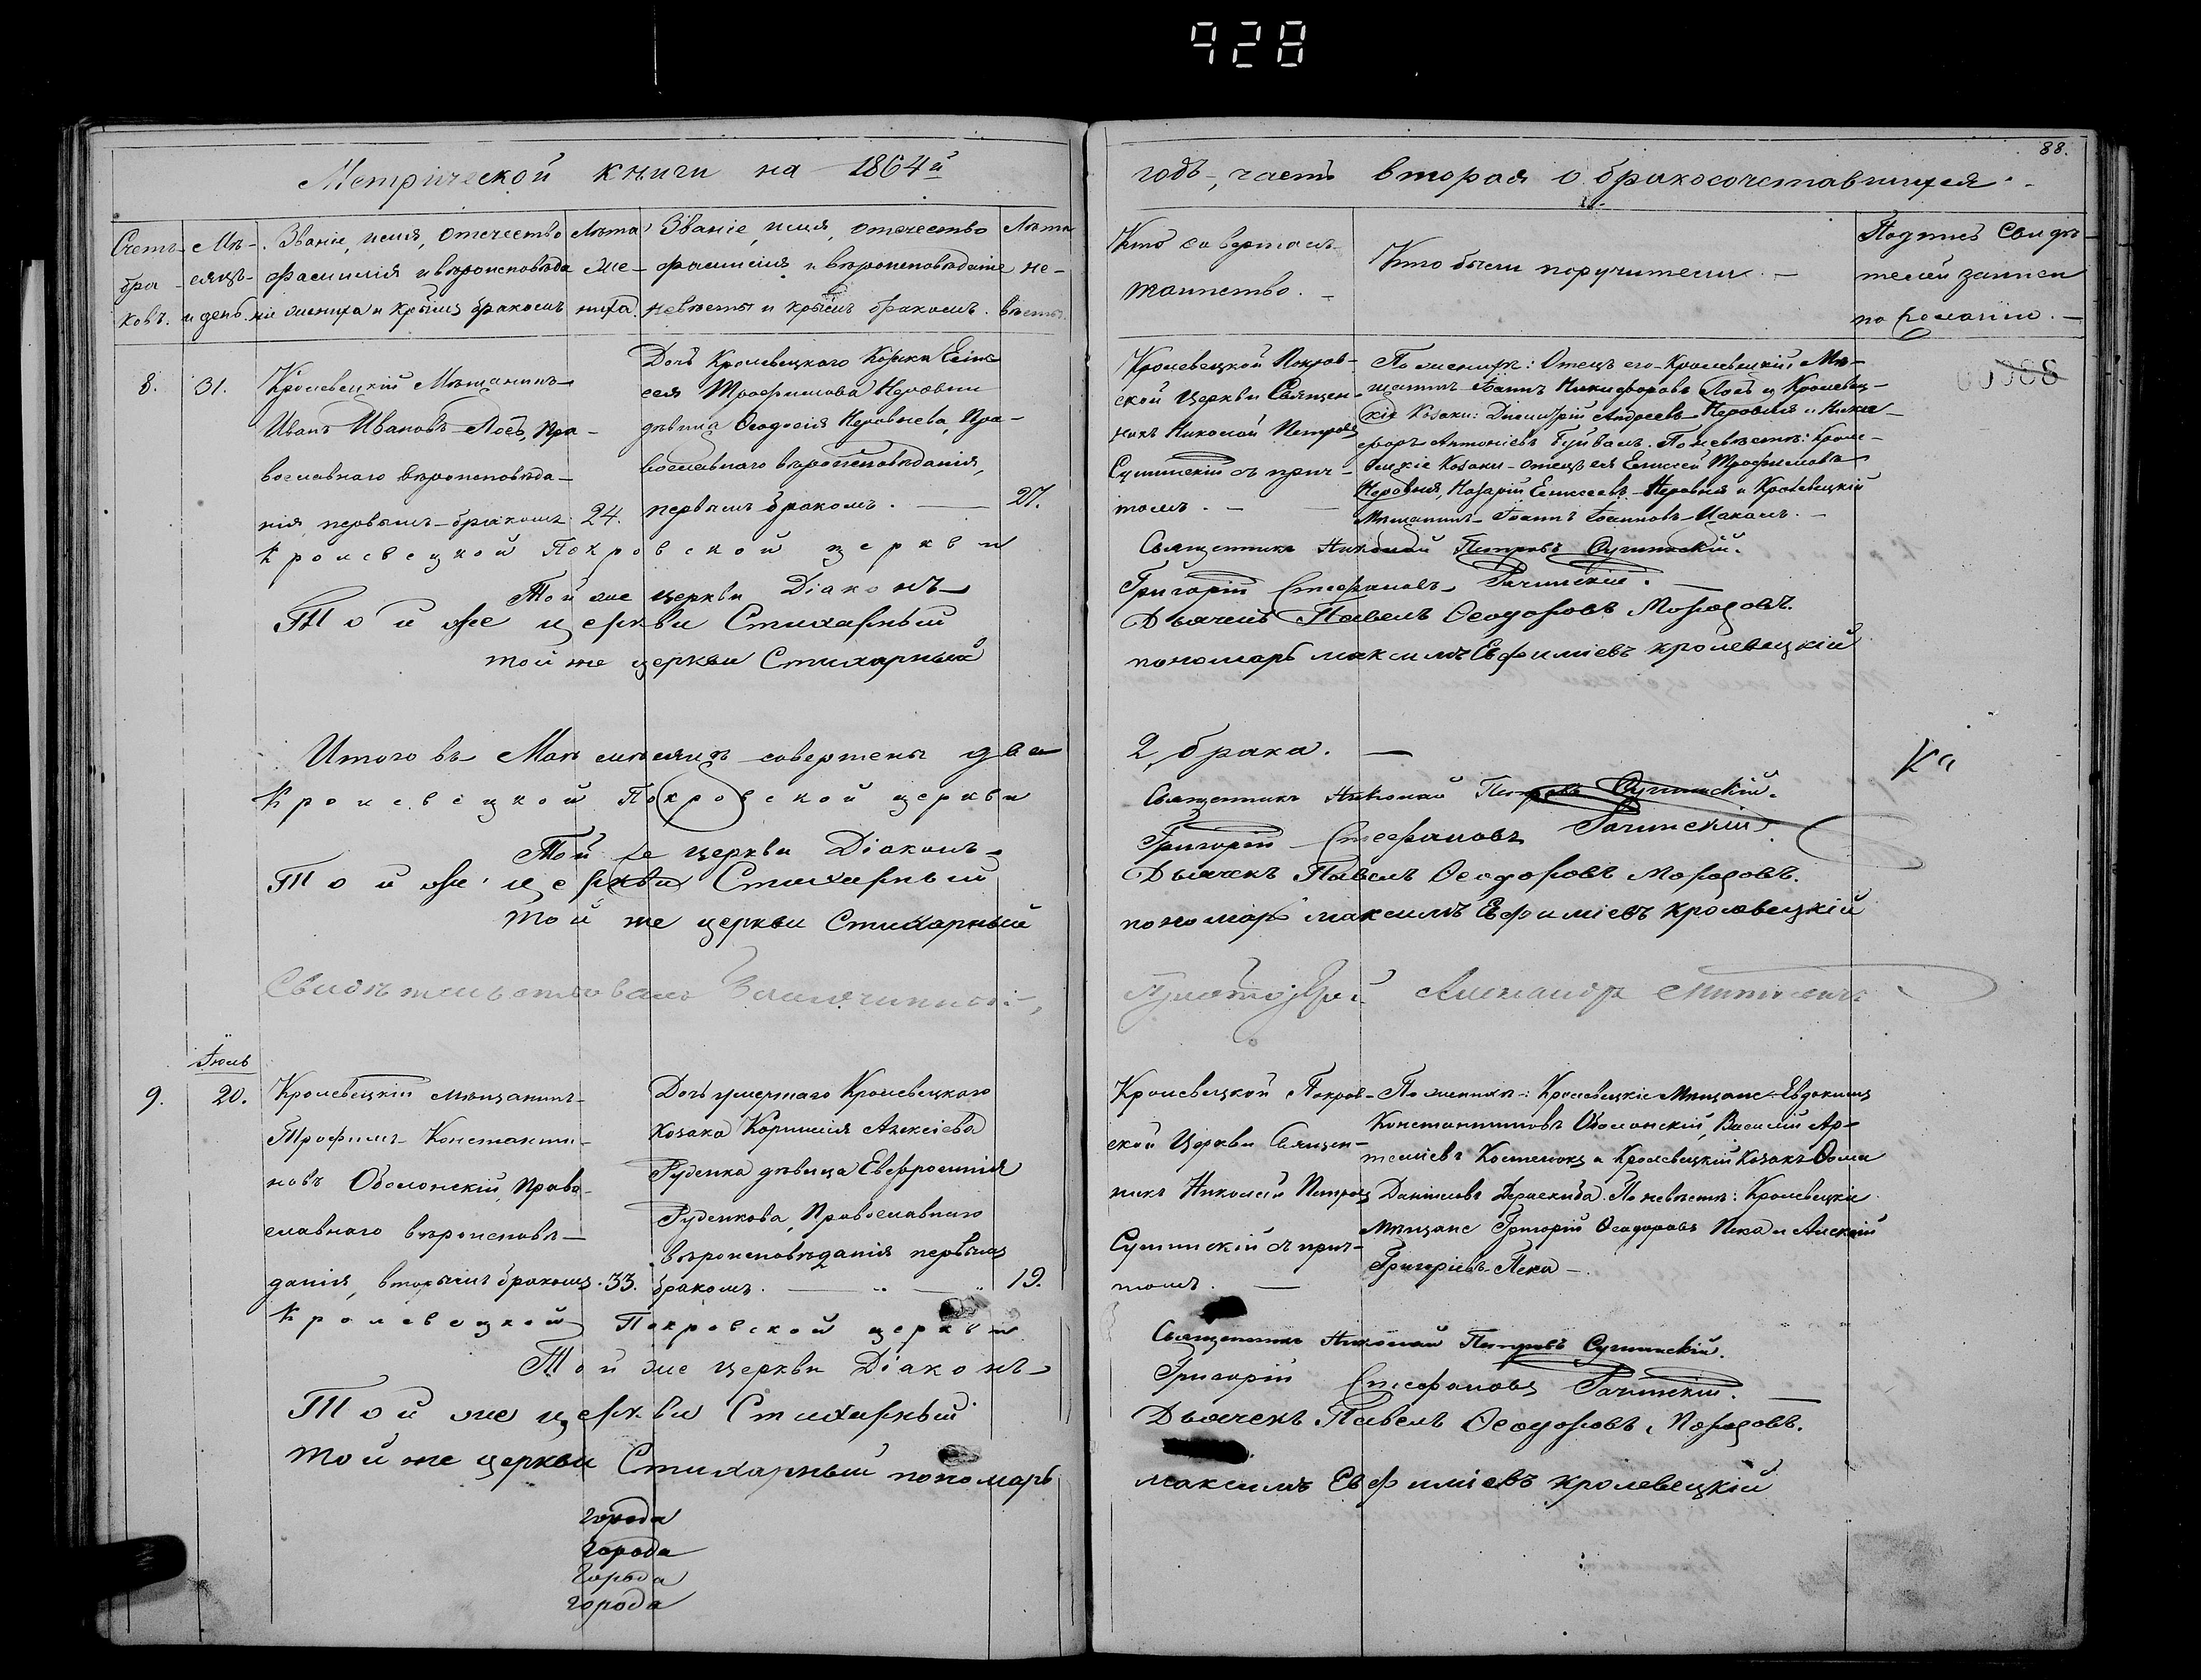 928
88.
Метрической книги на 1864й
годъ, часть вторая о бракосочетавшихся.
Счетъ бра-ковъ.
Мѣ-сяцъ и день.
Званіе, имя, отечество
фамилія и вѣроисповѣда-
ніе жениха и крымъ бракомъ
Лѣта же-ниха.
Званіе, имя, отечество
фамилія и вѣроисповѣданіе
невѣсты и крымъ бракомъ.
Лѣта не-вѣсты.
Кто совершалъ
таинство.
Кто были поручители.
Подпись свидѣ-
телей записи
по
8.
31.
Кролевецкій Мѣщанинъ
Иванъ Ивановъ Лось, Пра-
вославнаго вѣроисповѣда-
нія, первымъ бракомъ
24.
Дочь Кролевецкого Козака Елис
сея Трофимова Неровни
дѣвица Ѳеодосія Неровнева, Пра-
вославнаго вѣроисповѣданія,
первымъ бракомъ.
27.
Кролевецкой Покров-
ской Церкви Священ-
никъ Николай Петровъ
Сушинскій съ прич-
томъ.
По женихѣ: Отецъ его Кролевецкій Мѣ-
щанинъ Іоаннъ Никифоровъ Лось и Кролевец-
кіе Козаки: Димитрій Андреевъ Неровня и Ники-
форъ Антоніевъ. По невѣстѣ: Кроле-
вецкіе Козаки отецъ ея Елиссей Трофимовъ
Неровня, Назарій Елисеевъ Неровня и Кролевецкій
Мѣщанинъ Іоаннъ Іоанновъ
00088
Кролевецкой Покровской церкви
Священникъ Николай Петровъ Сушинскій.
Той же церкви Діаконъ
Григорій Стефановъ Рачинскій.
Той же церкви Стихарный
Дьячекъ Павелъ Ѳеодоровъ Мороз
той же церкви Стихарный
пономарь максимъ Евфиміевъ кролевецкій
Итого въ Маѣ мѣсяцѣ совершены два
2, брака.
Кролевецкой Покровской церкви
Священникъ Николай Петровъ Сушинскій.
Той же церкви Діаконъ
Григорій Стефановъ Рачинскій
Той же церкви Стихарный
Дьячекъ Павелъ Ѳеодоровъ
той же церкви Стихарный
пономарь максимъ Евфиміевъ кролевецкій
Свидѣтельствовалъ Благочинный,
Протоіерей Александръ
Іюль
9.
20.
Кролевецкій мѣщанинъ
Трофимъ Константи-
новъ Оболонскій, Право-
славнаго вѣроисповѣ-
данія, вторымъ бракомъ.
33.
Дочь умершаго Кролевецкого
Козака Корнилія Алексіева
Руденка дѣвица Евфросинія
Руденкова, Православнаго
вѣроисповѣданія первымъ
бракомъ.
19.
Кролевецкой Покров-
ской Церкви Священ-
никъ Николай Петровъ
Сушинскій съ прич-
томъ.
По женихѣ: Кролевецкіе Мѣщане: Евдокимъ
Константиновъ Оболонскій, Василій Ар-
теміевъ и Кролевецкій Козакъ Ѳома
Даніиловъ. По невѣстѣ: Кролевецкіе
Мѣщане Григорій Ѳеодоровъ Пека и Алексій
Григоріевъ Пека
Кролевецкой Покровской церкви
Священникъ Николай Петровъ Сушинскій.
Той же церкви Діаконъ
Григорій Стефановъ Рачинскій.
Той же церкви Стихарный
Дьячекъ Павелъ Ѳеодоровъ
той же церкви Стихарный пономарь
максимъ Евфиміевъ кролевецкій
города
города
города
города